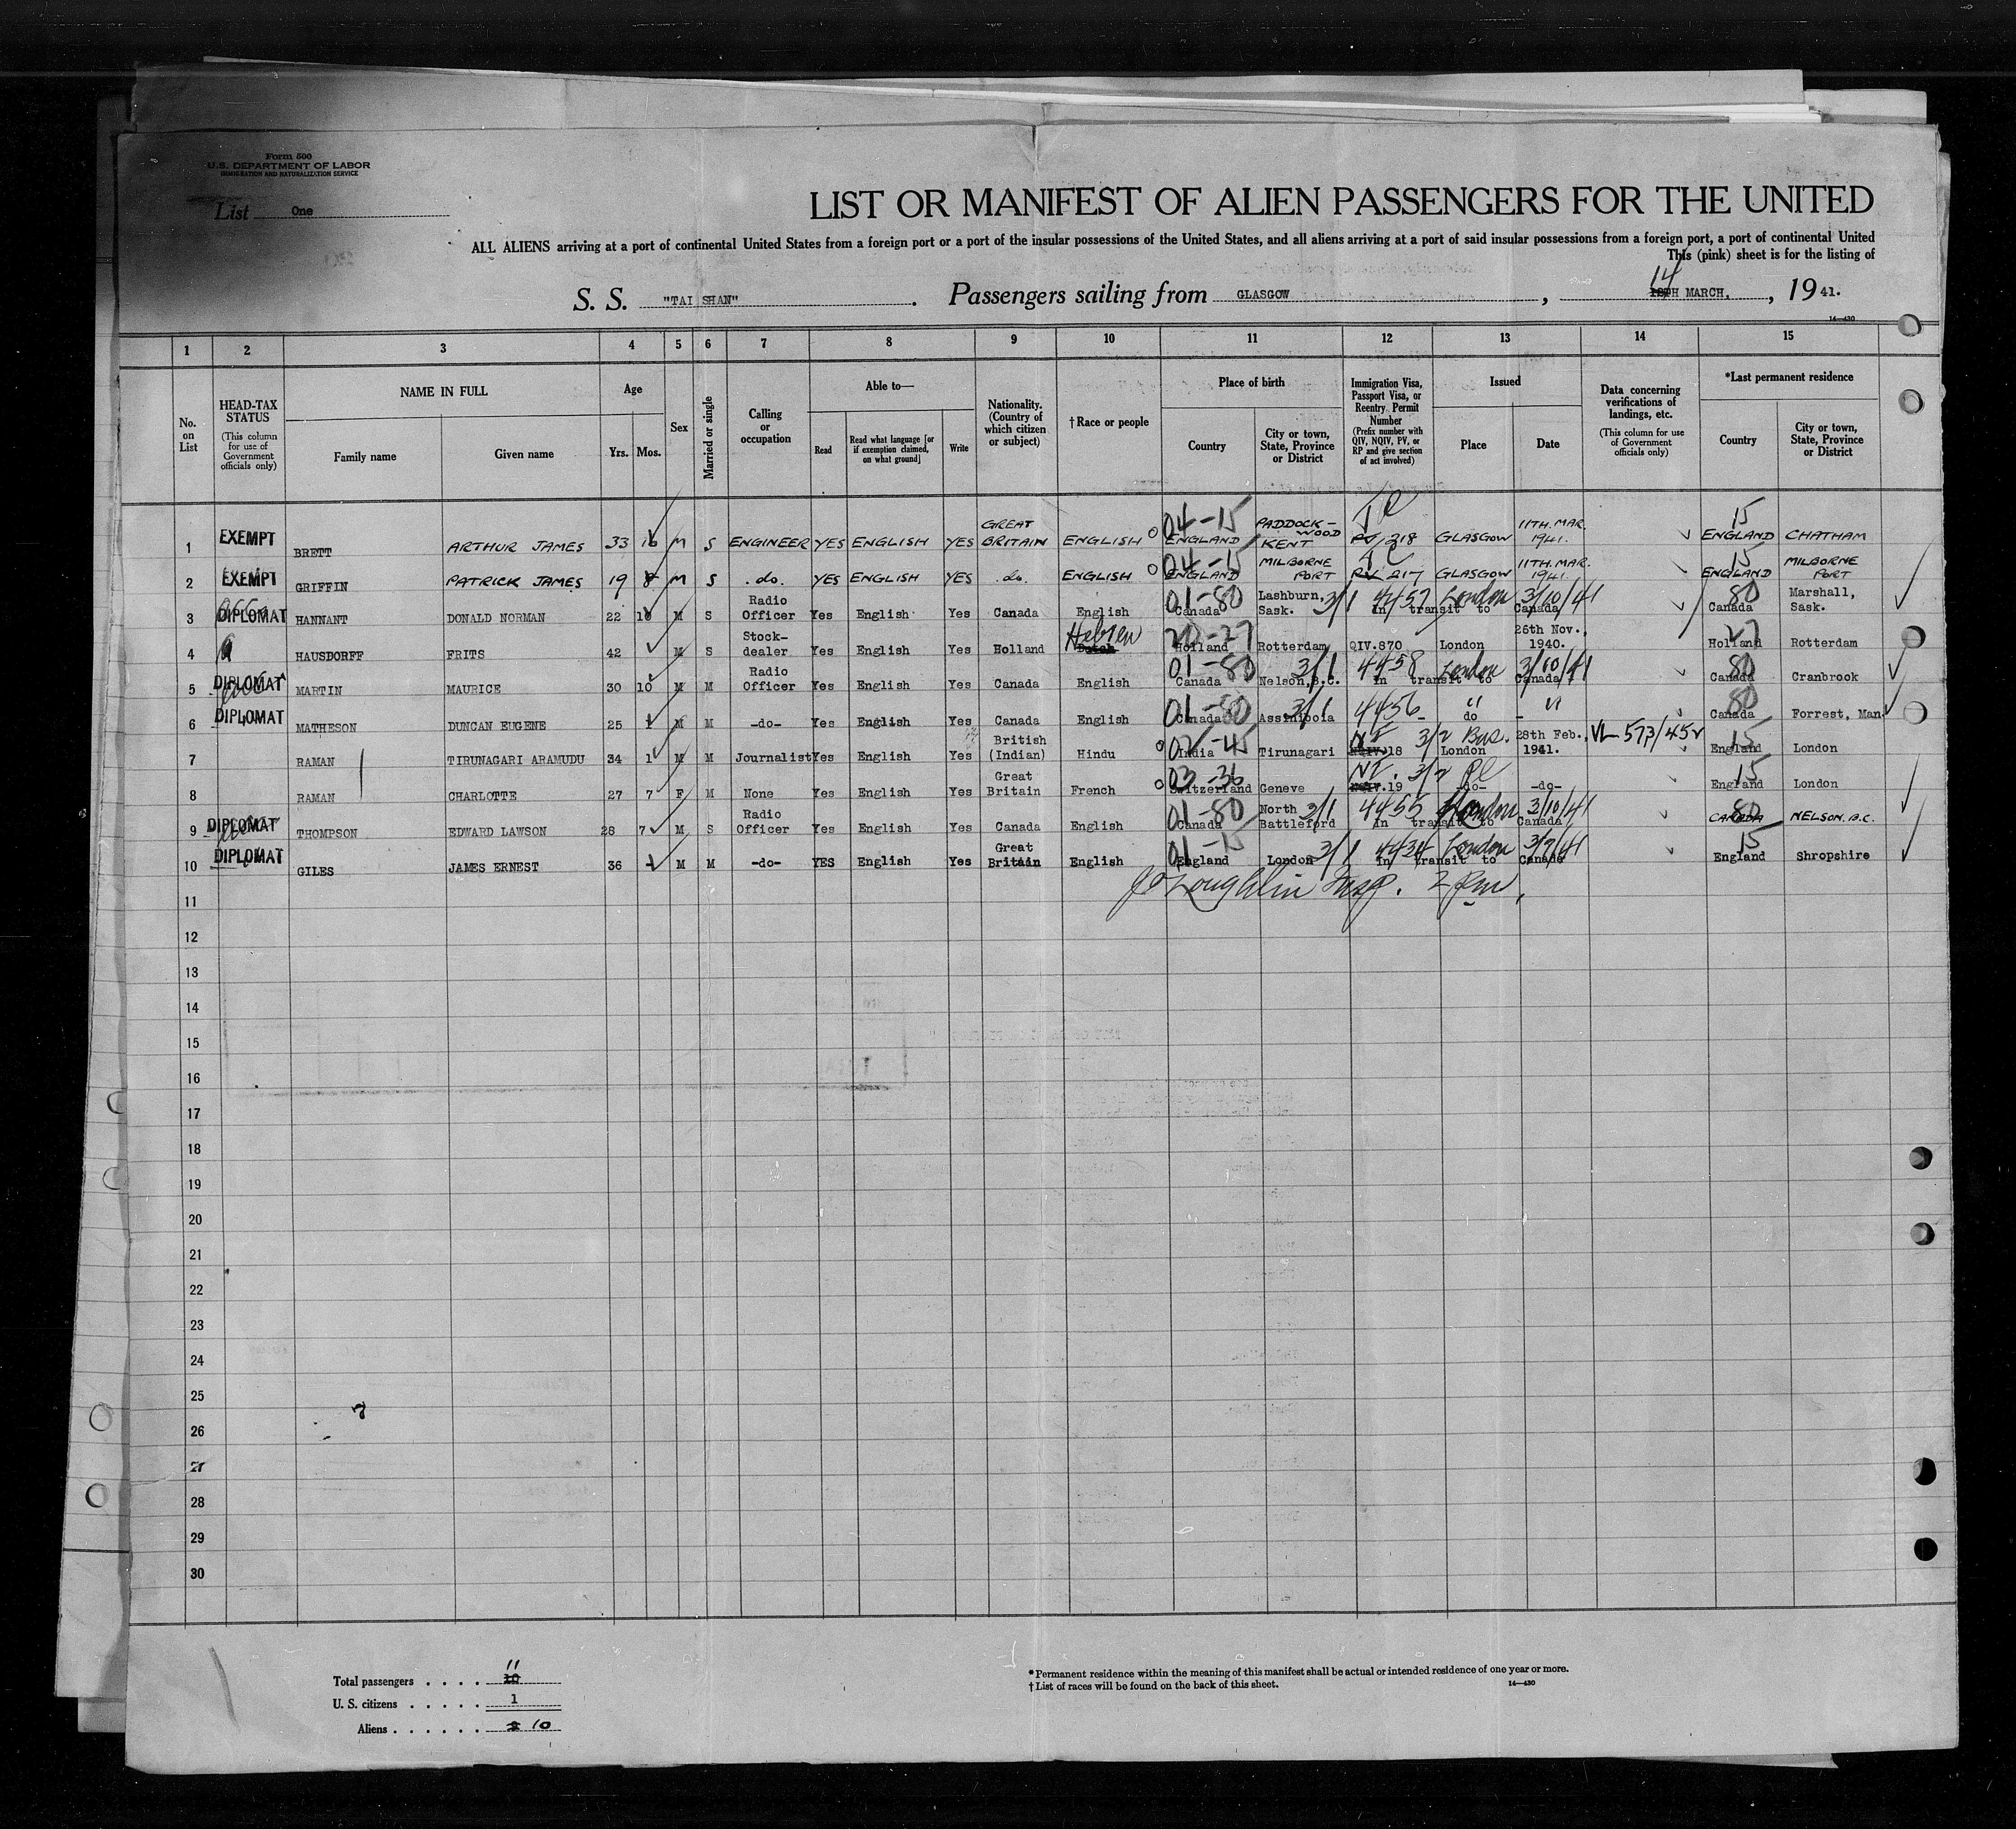 Form 500
U.S. DEPARTMENT OF LABOR
IMMIGRATION AND NATURALIZATION SERVICE
List One
LIST OR MANIFEST OF ALIEN PASSENGERS FOR THE UNITED
ALL ALIENS arriving at a port of continental United States from a foreign port or a port of the insular possessions of the United States, and all aliens arriving at a port of said insular possessions from a foreign port, a port of continental United
This (pink) sheet is for the listing of
S. S. "TAI SHAN". Passengers sailing from GLASGOW, 14TH MARCH, , 19 41.
14—430
1 2 3 4 5 6 7 8 9 10 11 12 13 14 15
No. on List
HEAD-TAX STATUS (This column for use of Government officials only)
NAME IN FULL
Family name Given name
Age
Yrs. Mos.
Sex
Married or single
Calling or occupation
Able to—
Read
Read what language [or if exemption claimed, on what ground]
Write
Nationality. (Country of which citizen or subject)
†Race or people
Place of birth
Country
City or town, State, Province or District
Immigration Visa, Passport Visa, or Reentry Permit Number (Prefix number with QIV, NQIV, PV, or RP and give section of act involved)
Issued
Place Date
Data concerning verifications of landings, etc. (This column for use of Government officials only)
*Last permanent residence
Country
City or town, State, Province or District
1 EXEMPT BRETT ARTHUR JAMES 33 10 M S ENGINEER YES ENGLISH YES GREAT BRITAIN ENGLISH 04-15 ENGLAND PADDOCK-WOOD KENT 218 GLASGOW 11TH. MAR. 1941. 15 ENGLAND CHATHAM
2 EXEMPT GRIFFIN PATRICK JAMES 19 8 M S .do. YES ENGLISH YES .do. ENGLISH 04-15 ENGLAND MILBORNE PORT 217 GLASGOW 11TH. MAR. 1941. 15 ENGLAND MILBORNE PORT
3 DIPLOMAT HANNANT DONALD NORMAN 22 10 M S Radio Officer Yes English Yes Canada English 01-80 Canada Lashburn, Sask. 3/1 4457 London 3/10/41 In transit to Canada 80 Canada Marshall, Sask.
4 HAUSDORFF FRITS 42 M S Stock-dealer Yes English Yes Holland Hebrew Dutch 27 Holland Rotterdam QIV.870 London 26th Nov., 1940. 27 Holland Rotterdam
5 DIPLOMAT MARTIN MAURICE 30 10 M M Radio Officer Yes English Yes Canada English 01-80 Canada Nelson, B.C. 3/1 4458 London 3/10/41 In transit to Canada 80 Canada Cranbrook
6 DIPLOMAT MATHESON DUNCAN EUGENE 25 1 M M -do- Yes English Yes Canada English 01-80 Canada Assiniboia 3/1 4456 " " - do - 80 Canada Forrest, Man.
7 RAMAN TIRUNAGARI ARAMUDU 34 1 M M Journalist Yes English Yes British (Indian) Hindu 02-45 India Tirunagari 18 3/2 Bus. London 28th Feb., 1941. VL 573/452 15 England London
8 RAMAN CHARLOTTE 27 7 F M None Yes English Yes Great Britain French 03-36 Switzerland Geneve 19 3/2 -do- -do- 15 England London
9 DIPLOMAT THOMPSON EDWARD LAWSON 28 7 M S Radio Officer Yes English Yes Canada English 01-80 Canada North Battleford 3/1 4455 London 3/10/41 In transit to Canada 80 CANADA NELSON. B.C.
10 DIPLOMAT GILES JAMES ERNEST 36 1 M M -do- YES English Yes Great Britain English 01-15 England London 3/1 4434 London 3/7/41 In transit to Canada 15 England Shropshire
11 J O'Loughlin Insp. 2 pm,
12
13
14
15
16
17
18
19
20
21
22
23
24
25
26
27
28
29
30
Total passengers . . . . 11 10
U. S. citizens . . . . . 1
Aliens . . . . . . 10
*Permanent residence within the meaning of this manifest shall be actual or intended residence of one year or more.
†List of races will be found on the back of this sheet.
14—430